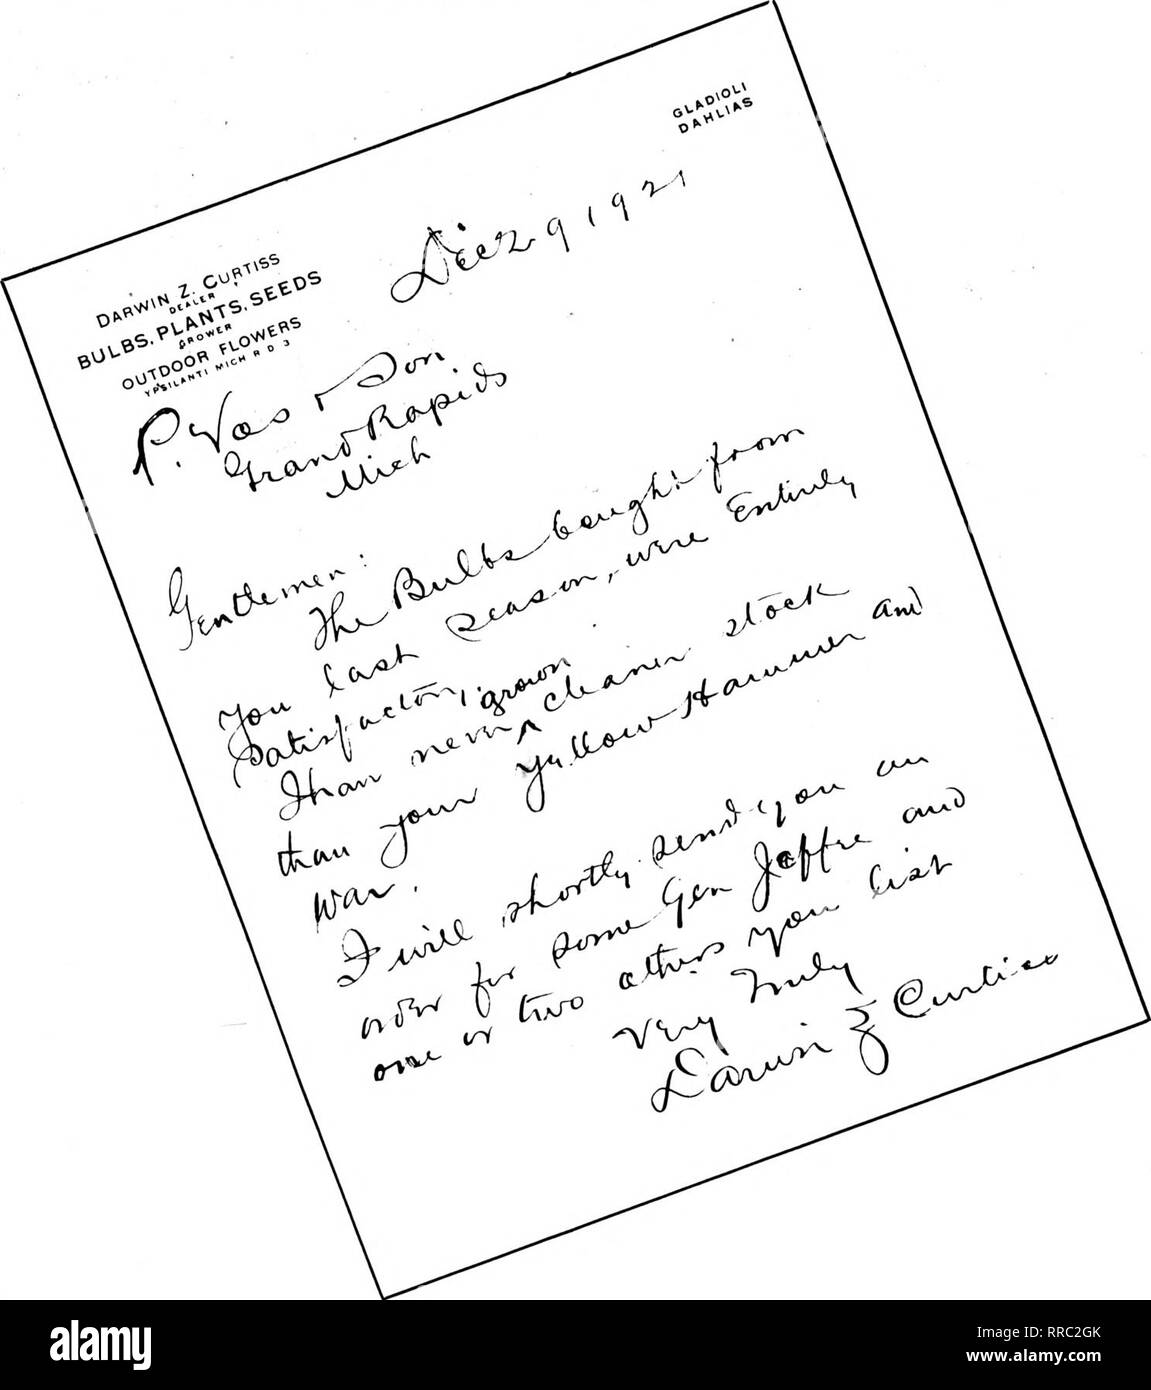 GLADIOLI
DAHLIAS
DARWIN Z. CURTISS
DEALER
BULBS, PLANTS, SEEDS
GROWER
OUTDOOR FLOWERS
YPSILANTI MICH R D 3
Dec 29 1921
P. Vos & Son
Grand Rapids
Mich
Gentlemen:
The Bulbs bought from
You last season, were Entirely
Satisfactory, grown
I have never ^ cleaner stock
than your Yellow Hammer and
War.
I will shortly send you an
order for some Gen Joffre and
one or two others you list
Very Truly
Darwin Z Curtiss
alamy
Image ID: RRC2GK
www.alamy.com